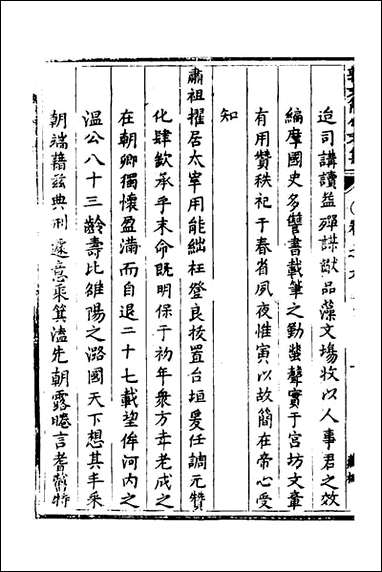 迨司講讀益殫謀猷品藻文塲收以人事君之效
編摩國史多讐書載筆之勤蜚聲實于宮坊文章
有用贊秩祀于春省夙夜惟寅以故簡在帝心受
知
肅祖擢居太宰用能絀枉登良拔置台垣爰任調元贊
化肆歆承乎末命既明保于初年衆方幸老成之
在朝卿獨懷盈滿而自退二十七載望侔河内之
温公八十三齡壽比雒陽之潞國天下想其丰采
朝端藉兹典刑遽意乘箕溘先朝露睠言耆舊特